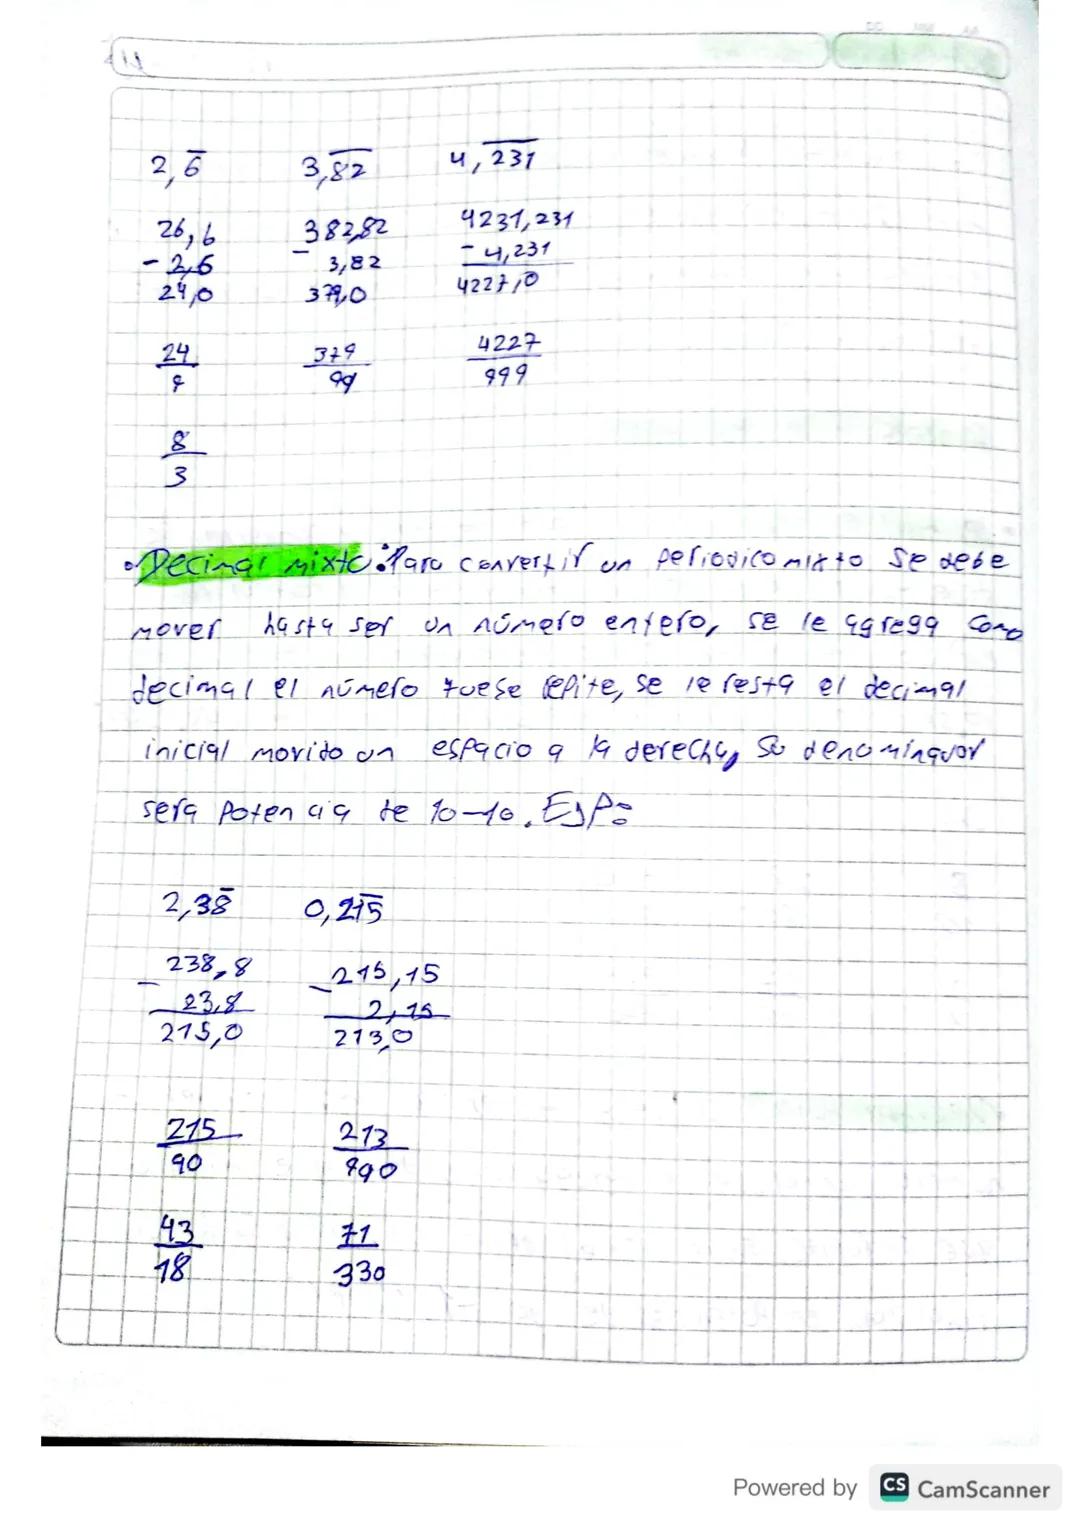 2,6̅ 3,8̅2̅ 4,2̅3̅1̅
26,6 382,82 4231,231
- 2,6 - 3,82 - 4,231
24,0 379,0 4227,0
24 379 4227
9 99 999
8
3
• Decimal mixto: Para convertir un periodico mixto se debe
mover hasta ser un número entero, se le agrega como
decimal el número que se repite, se le resta el decimal
inicial movido un espacio a la derecha, Su denominador
sera potencia de 10-10. Ejp:
2,38̅ 0,21̅5̅
- 238,8 - 215,15
23,8 2,15
215,0 213,0
215 213
90 990
43 71
18 330
Powered by CS CamScanner